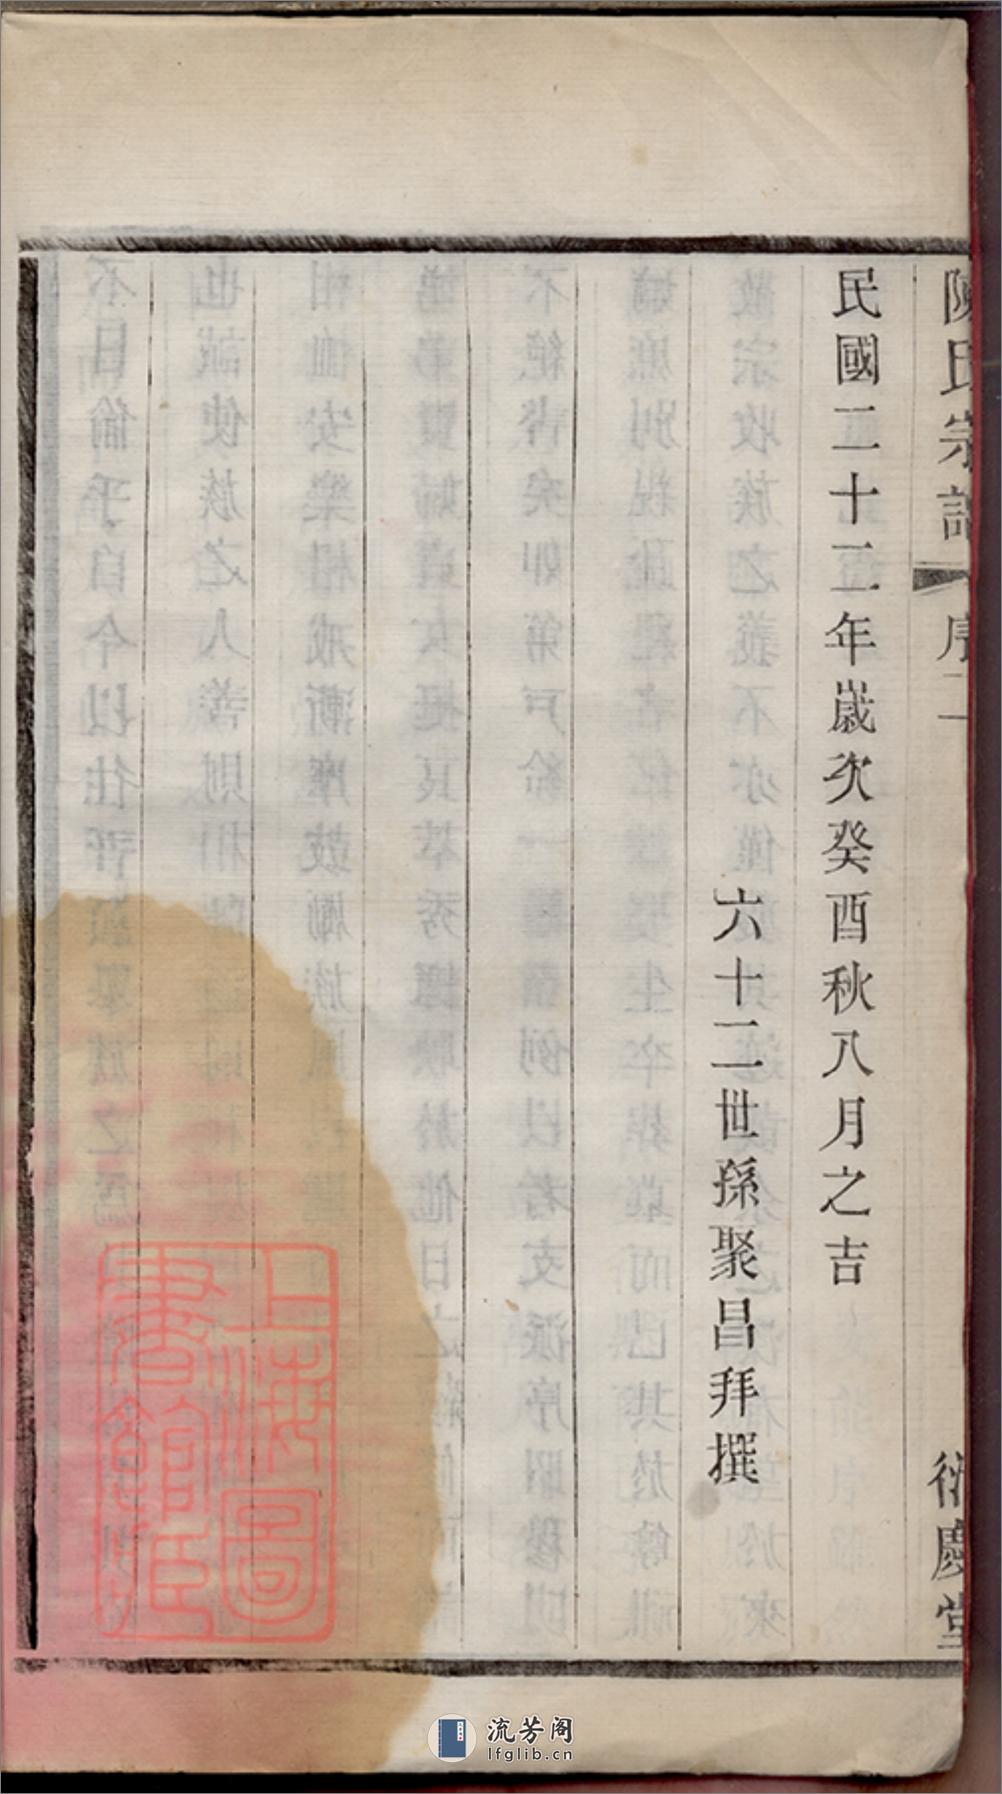 陳氏宗譜 序二 衍慶堂
民國二十二年歲次癸酉秋八月之吉
六十二世孫聚昌拜撰
上海圖
書館藏
流芳阁
lfglib.cn